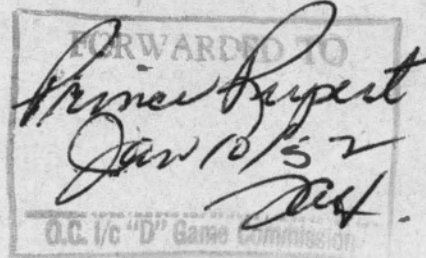 FORWARDED TO
Prince Rupert
Jan 10/52
O.C. i/c "D" Game Commission